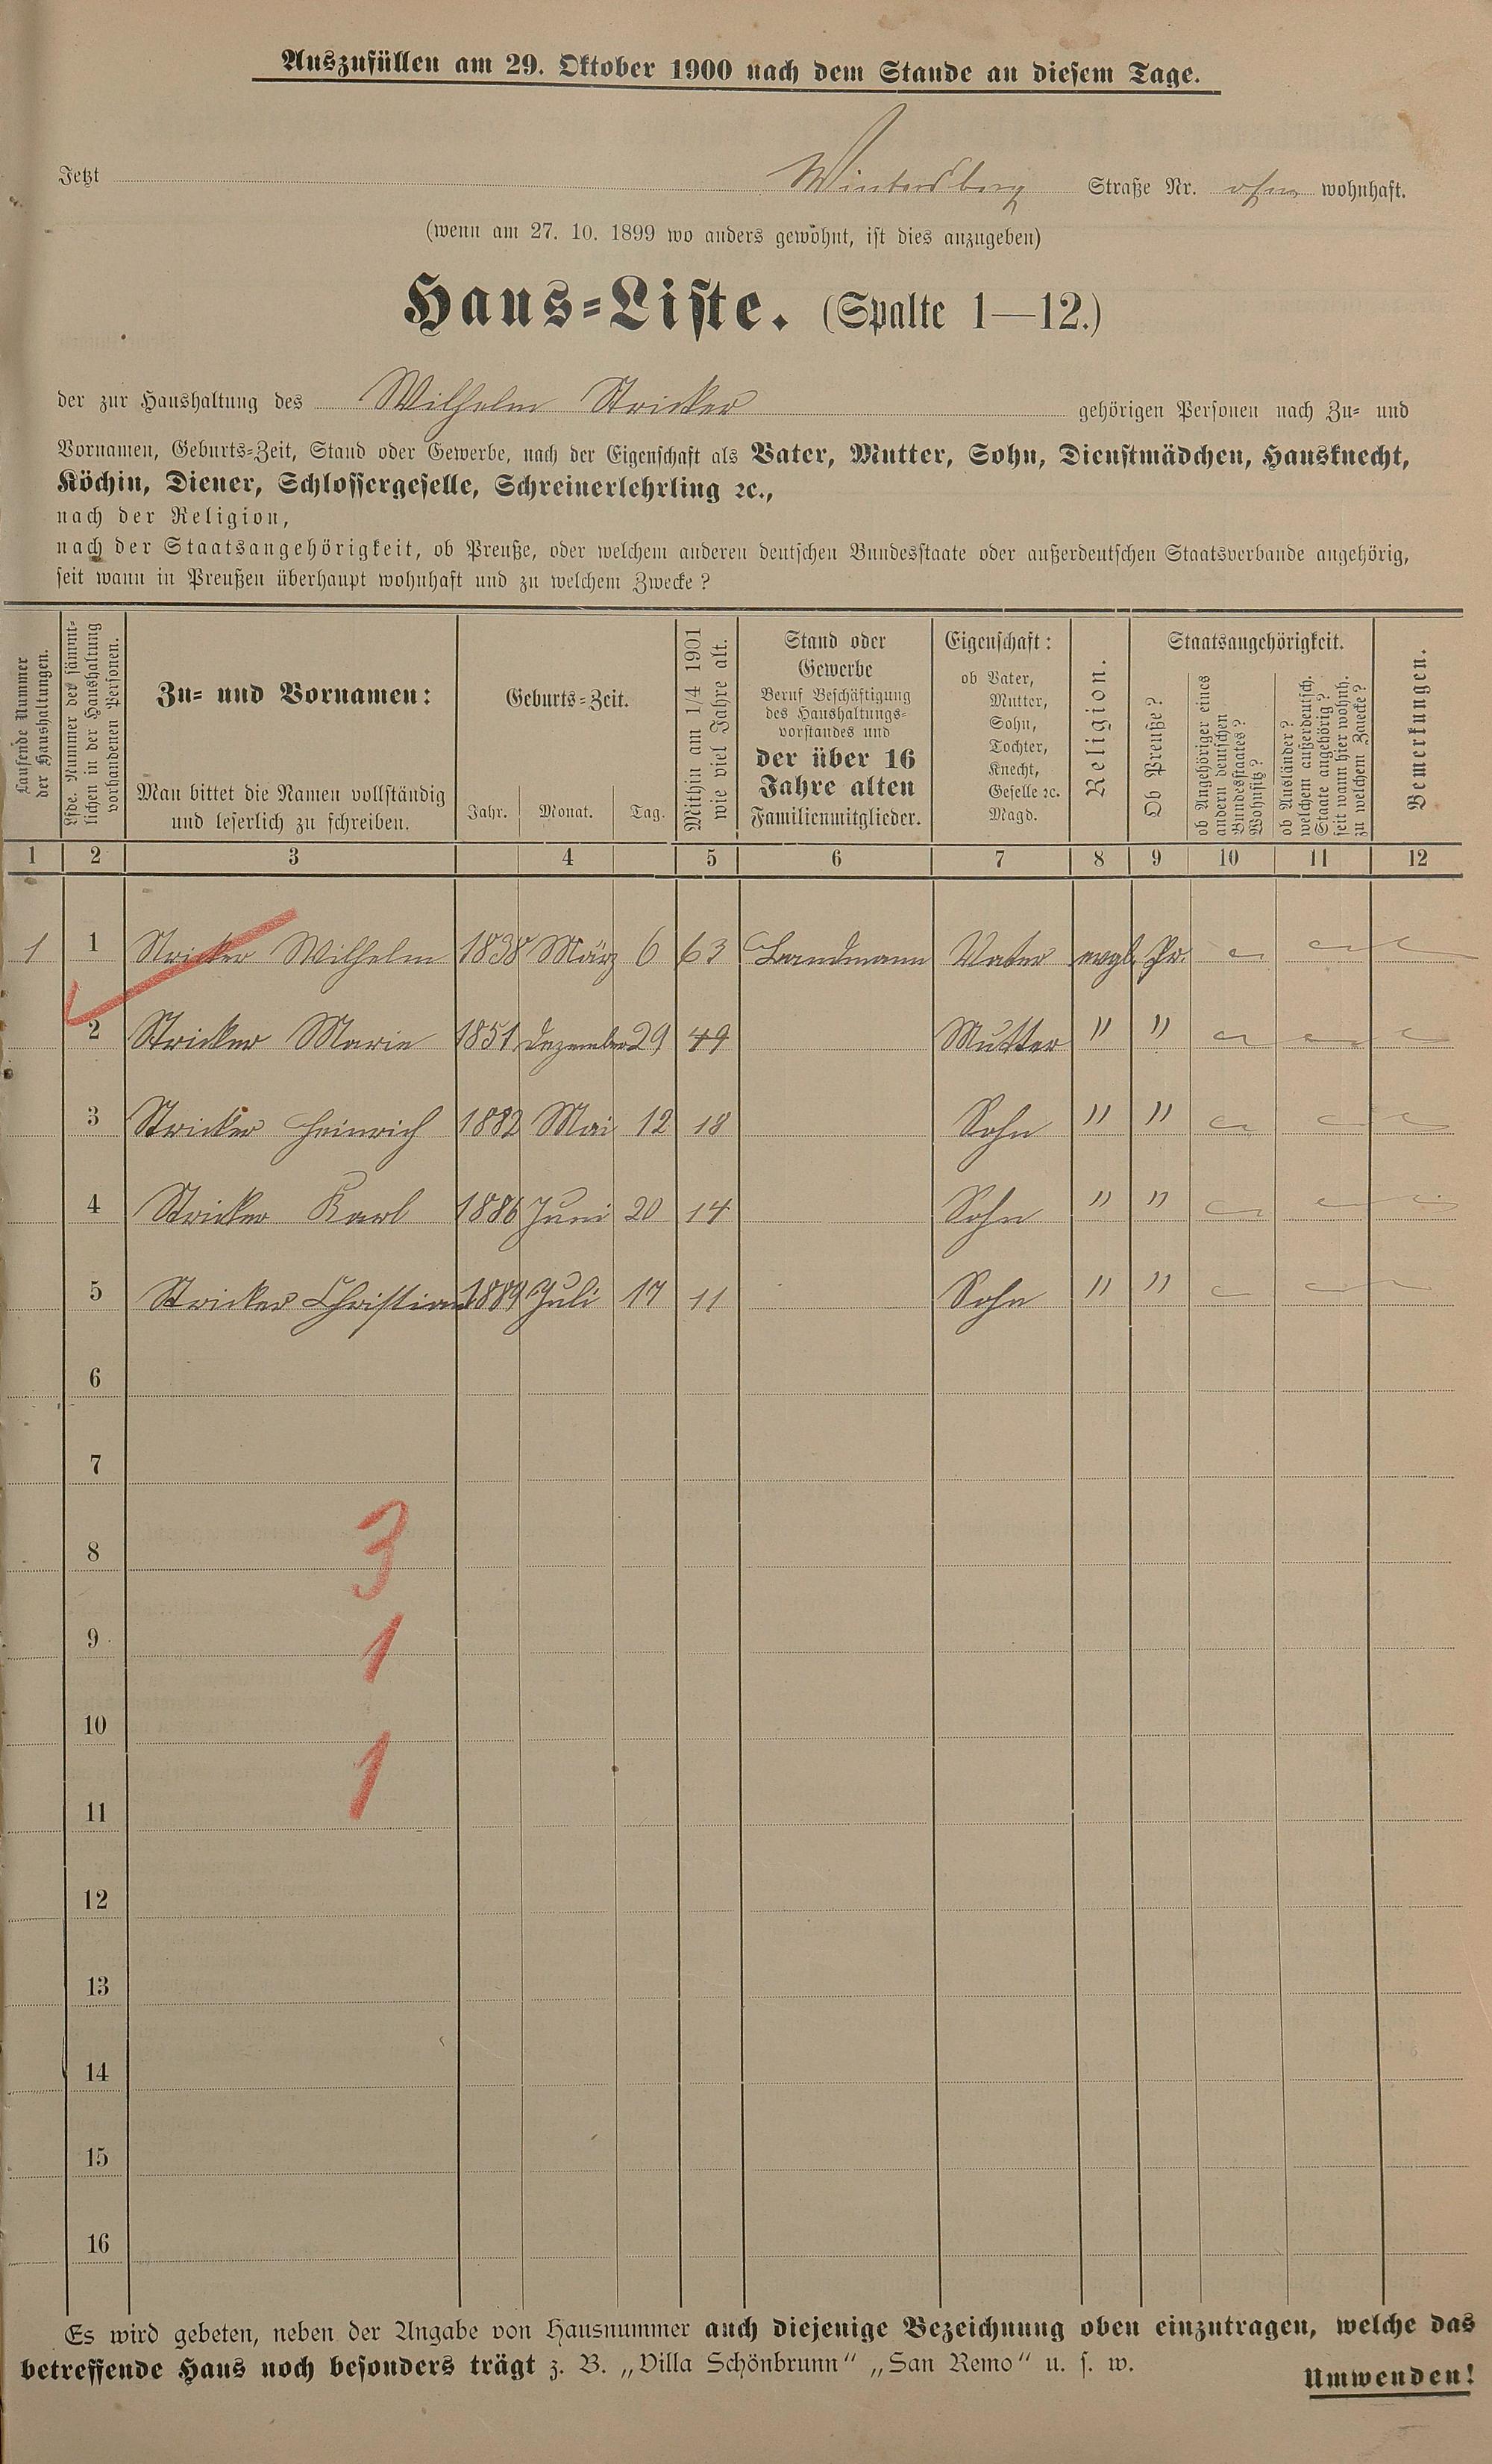 Auszufüllen am 29. Oktober 1900 nach dem Stande an diesem Tage.
Jetzt Wintersberg Straße Nr. ohne wohnhaft.
(wenn am 27. 10. 1899 wo anders gewohnt, ist dies anzugeben)
Haus-Liste. (Spalte 1—12.)
der zur Haushaltung des Wilhelm Stricker gehörigen Personen nach Zu- und
Vornamen, Geburts-Zeit, Stand oder Gewerbe, nach der Eigenschaft als Vater, Mutter, Sohn, Dienstmädchen, Hausknecht,
Köchin, Diener, Schlossergeselle, Schreinerlehrling ꝛc.,
nach der Religion,
nach der Staatsangehörigkeit, ob Preuße, oder welchem anderen deutschen Bundesstaate oder außerdeutschen Staatsverbande angehörig,
seit wann in Preußen überhaupt wohnhaft und zu welchem Zwecke?
Laufende Nummer
der Haushaltungen.
Lfde. Nummer der sämmt-
lichen in der Haushaltung
vorhandenen Personen.
Zu- und Vornamen:
Man bittet die Namen vollständig
und leserlich zu schreiben.
Geburts-Zeit.
Jahr. Monat. Tag.
Mithin am 1/4 1901
wie viel Jahre alt.
Stand oder
Gewerbe
Beruf Beschäftigung
des Haushaltungs-
vorstandes und
der über 16
Jahre alten
Familienmitglieder.
Eigenschaft:
ob Vater,
Mutter,
Sohn,
Tochter,
Knecht,
Geselle ꝛc.
Magd.
Religion.
Staatsangehörigkeit.
Ob Preuße?
ob Angehöriger eines
andern deutschen
Bundesstaates?
Wohnsitz?
ob Ausländer?
welchem außerdeutsch.
Staate angehörig?
seit wann hier wohnh.
zu welchem Zwecke?
Bemerkungen.
1 2 3 4 5 6 7 8 9 10 11 12
1 1 Stricker Wilhelm 1838 März 6 63 Landmann Vater evgl. Pr.
2 Stricker Marie 1851 Dezember 29 49 Mutter " "
3 Stricker Heinrich 1882 Mai 12 18 Sohn " "
4 Stricker Karl 1886 Juni 20 14 Sohn " "
5 Stricker Christian 1889 Juli 17 11 Sohn " "
6
7
8 3
9 1
10
11 1
12
13
14
15
16
Es wird gebeten, neben der Angabe von Hausnummer auch diejenige Bezeichnung oben einzutragen, welche das
betreffende Haus noch besonders trägt z. B. „Villa Schönbrunn“ „San Remo“ u. s. w.
Umwenden!